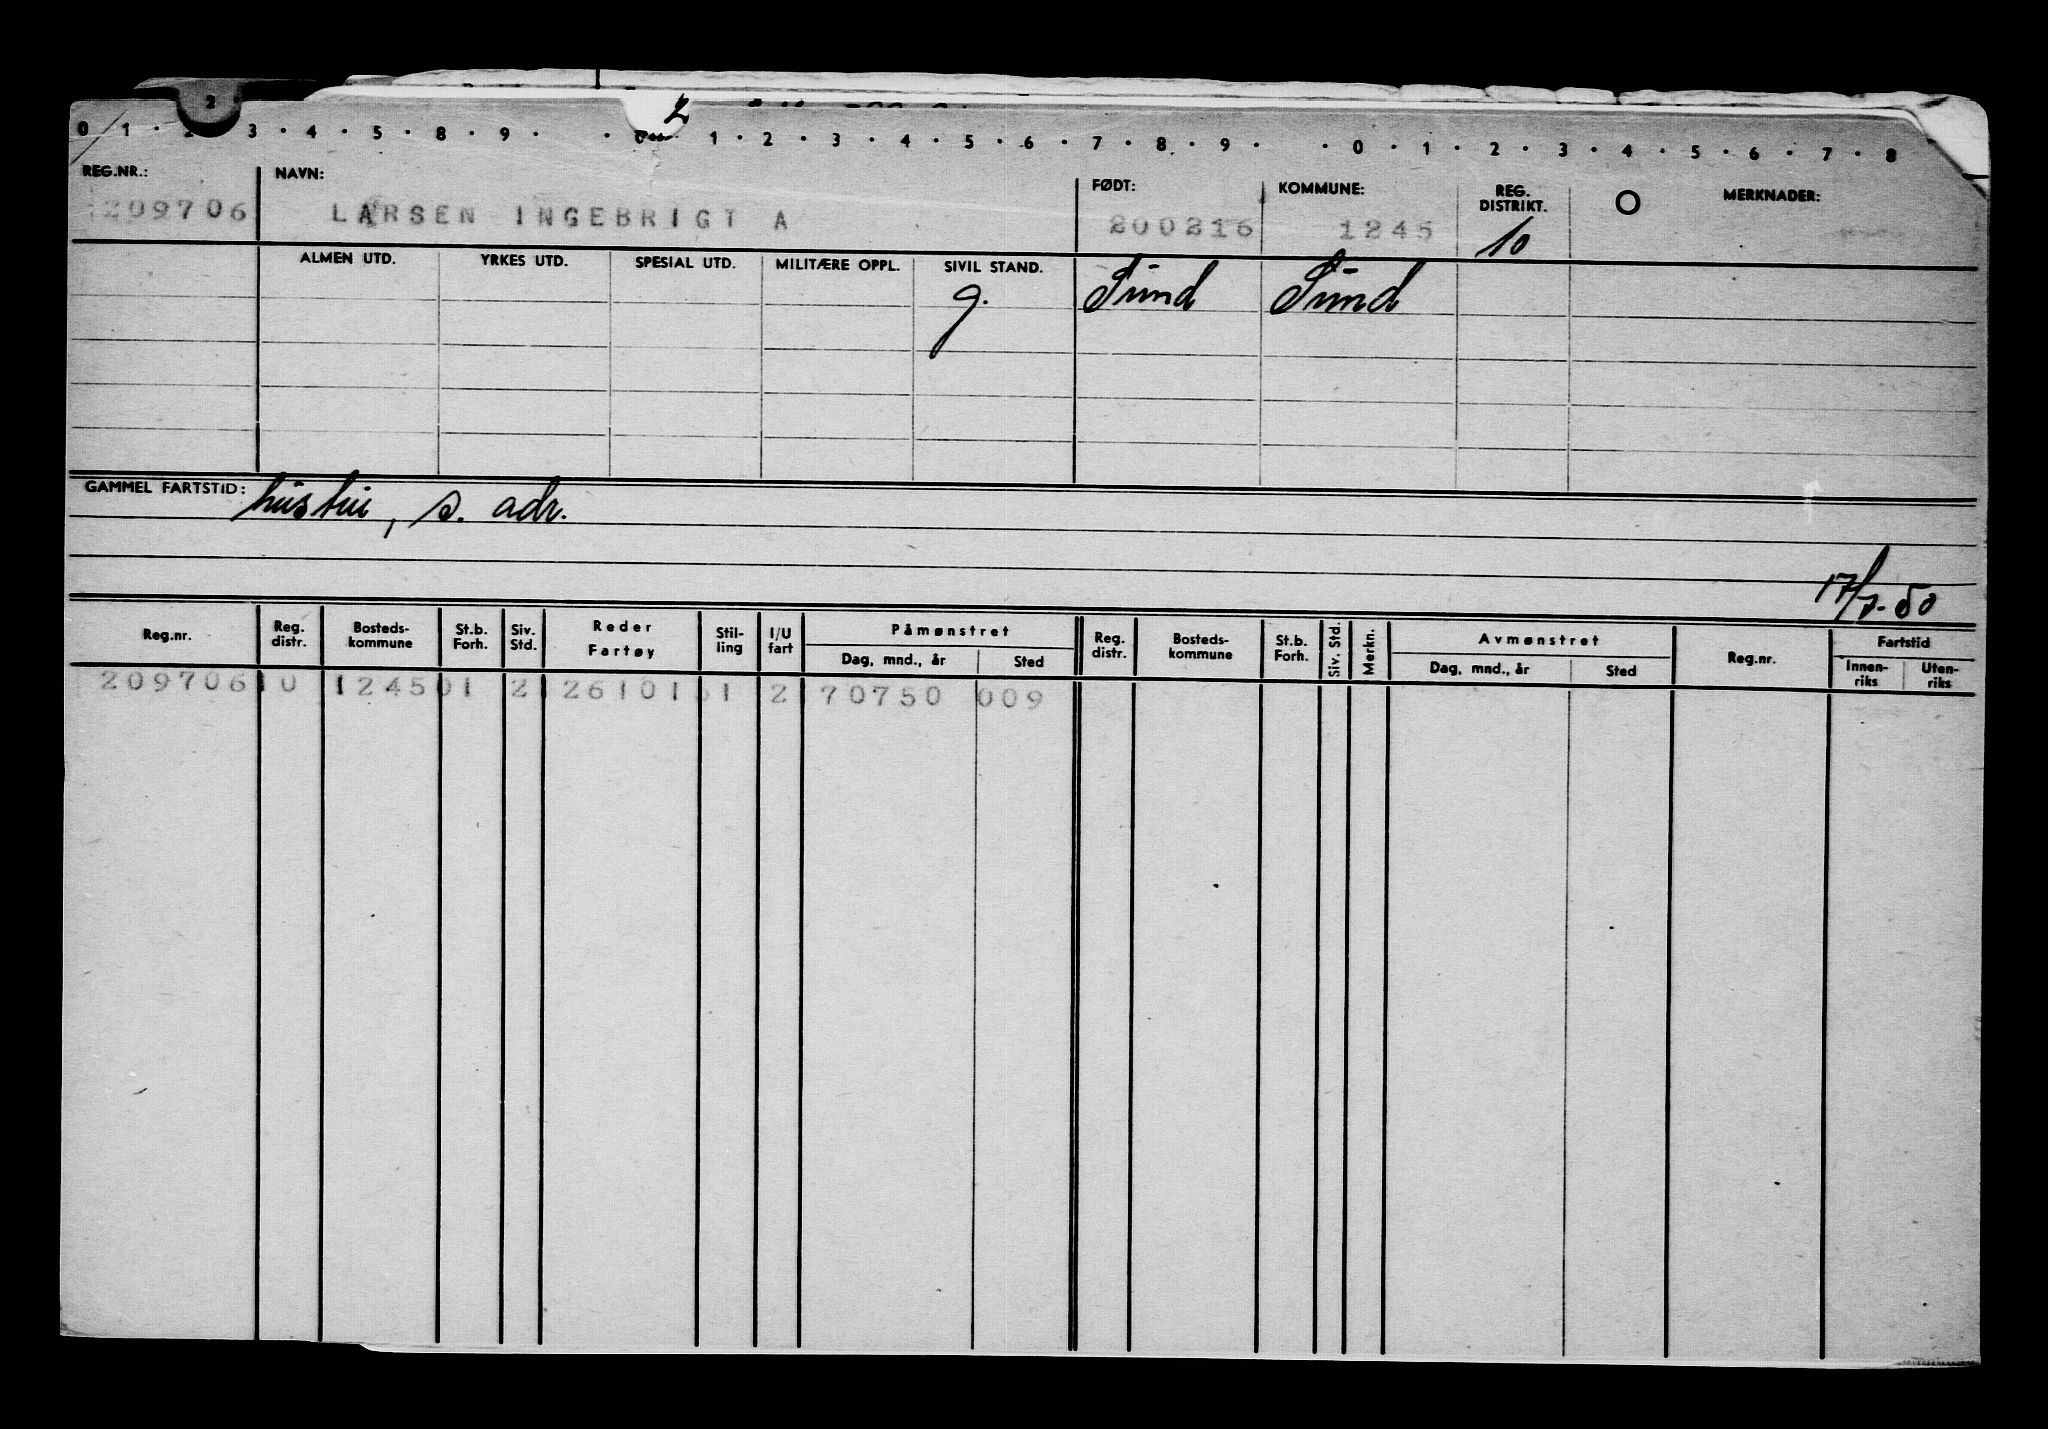 2
2
0 1 2 3 4 5 8 9 0 1 2 3 4 5 6 7 8 9 0 1 2 3 4 5 6 7 8
REG.NR.: NAVN: FØDT: KOMMUNE: REG. DISTRIKT. O MERKNADER:
209706 LARSEN INGEBRIGT A 200216 1245 10
ALMEN UTD. YRKES UTD. SPESIAL UTD. MILITÆRE OPPL. SIVIL STAND.
g. Sund Sund
GAMMEL FARTSTID: hustru, s. adr.
17/7-50
Reg.nr. Reg. distr. Bosteds-kommune St.b. Forh. Siv. Std. Reder Fartøy Stil-ling I/U fart Påmønstret Dag, mnd., år Sted Reg. distr. Bosteds-kommune St.b. Forh. Siv. Std. Merkn. Avmønstret Dag, mnd., år Sted Reg.nr. Fartstid Innen-riks Uten-riks
209706 10 1245 01 2 26101 51 2 170750 009